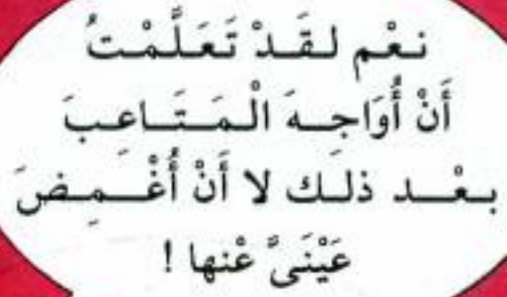 نعْم لقَدْ تَعَلَّمْتُ
أَنْ أُوَاجِهَ الْمَتَاعِبَ
بعْد ذلَك لا أَنْ أُغْمِضَ
عَيْنَىَّ عْنها !